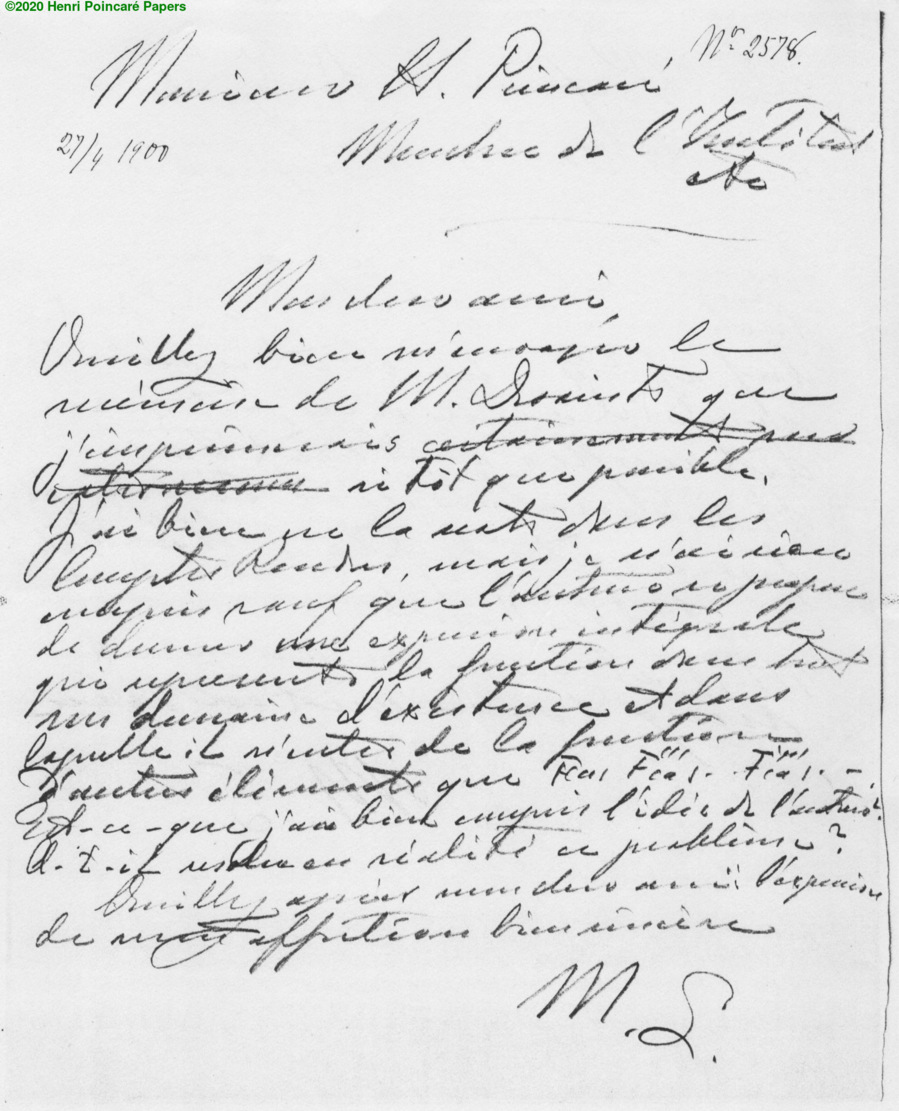 ©2020 Henri Poincaré Papers
Nr 2578.
Monsieur H. Poincaré,
27/4 1900
Membre de l'Institut
etc
Mon cher ami,
Veuillez bien m'envoyer le
mémoire de M. Desaint que
j'imprimerais certainement
si tôt que possible.
J'ai bien vu la note dans les
Comptes Rendus, mais je n'ai rien
compris sauf que l'auteur se propose
de donner une expression intégrale
qui représente la fonction dans tout
son domaine d'existence et dans
laquelle il n'entre de la fonction
d'autres éléments que F(a), F'(a), F''(a). -
Est-ce-que j'ai bien compris l'idée de l'auteur?
A-t-il résolu en réalité ce problème?
Veuillez agréer mon cher ami l'expression
de mon affection bien sincère
M. L.